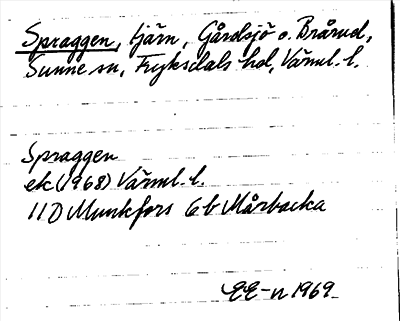 Spraggen, tjärn, Gårdsjö o. Brårud,
Sunne sn, Fryksdals hd, Värml. l.
Spraggen
ek (1968) Värml. l.
11D Munkfors 6 b Mårbacka
EE-n 1969